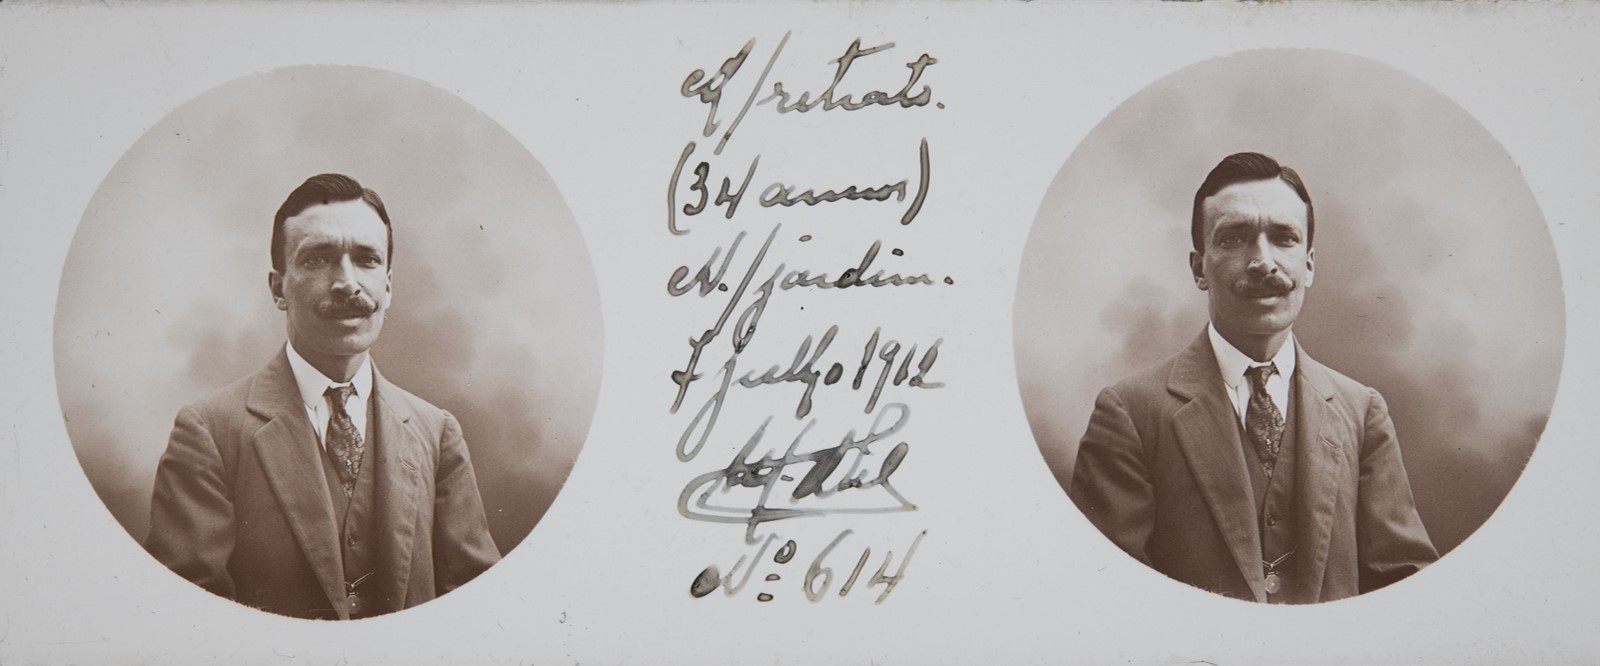 M/retrato.
(34 annos)
N./jardim.
7 Julho 1912
Nº 614